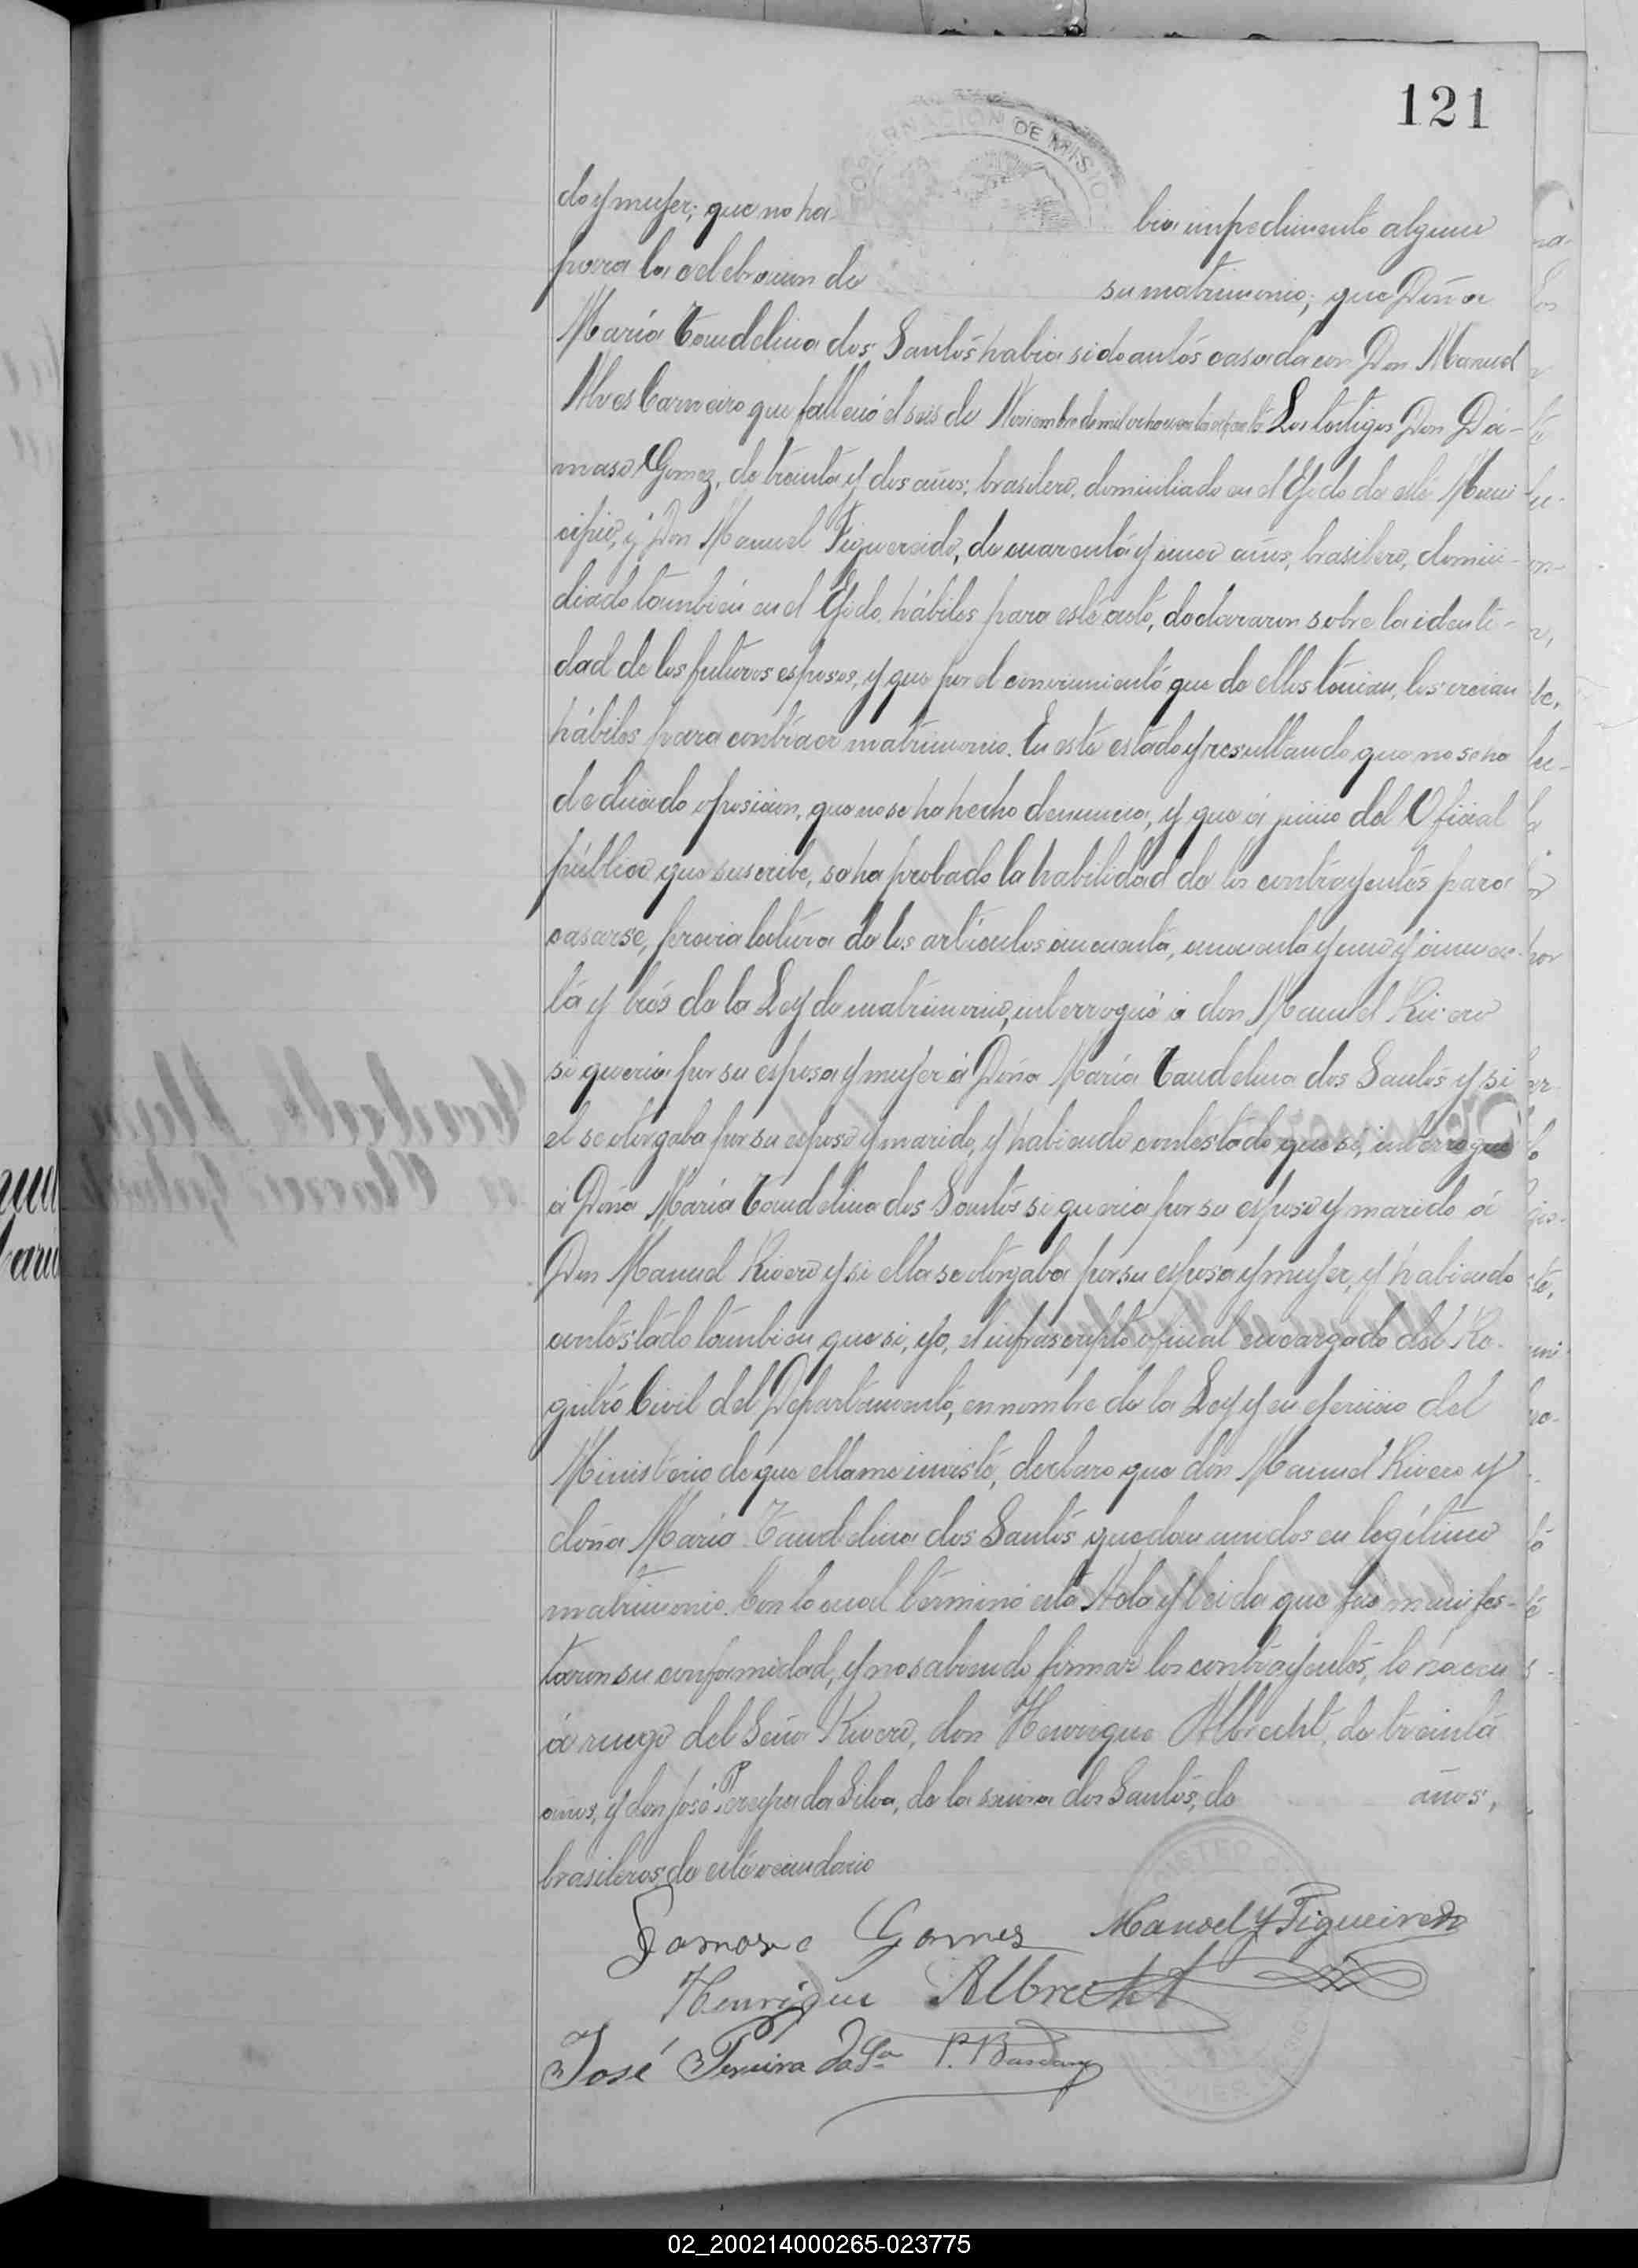 121
GOBERNACION DE MISIO
do y mujer; que no ha- bia impedimento alguno
para la celebracion de su matrimonio; que Doña
María Caudelina dos Santos habia sido antes casada con Don Manuel
Alves Carneiro que falleció el seis de Noviembre de mil ochocientos Los testigos Don Dá-
maso Gomez, de treinta y dos años, brasilero, domiciliado en el Ejido de este Muni-
cipio, y Don Manuel Figuereido, de cuarenta y cinco años, brasilero, domici-
liado tambien en el Ejido, hábiles para este acto, declararon sobre la identi-
dad de los futuros esposos, y que por el conocimiento que de ellos tenian, los creian
hábiles para contraer matrimonio. En este estado y resultando que no se ha
deducido oposicion, que no se ha hecho denuncia, y que á juicio del Oficial
público que suscribe, se ha probado la habilidad de los contrayentes para
casarse, previa lectura de los artículos cincuenta, cincuenta y uno y cincuen-
ta y tres de la Ley de matrimonio, interrogué á don Manuel Rivero
si queria por su esposa y mujer á Doña María Caudelina dos Santos y si
el se otorgaba por su esposo y marido, y habiendo contestado que si, interrogué
á Doña María Caudelina dos Santos si queria por su esposo y marido á
Don Manuel Rivero y si ella se otorgaba por su esposa y mujer, y habiendo
contestado tambien que si, yo, el infrascripto oficial encargado del Re-
gistro Civil del Departamento, en nombre de la Ley y en ejercicio del
Ministerio de que ella me inviste, declaro que don Manuel Rivero y
doña María Caudelina dos Santos quedan unidos en legítimo
matrimonio. Con lo cual terminó esta Acta y leida que fue manifes-
taron su conformidad, y no sabiendo firmar los contrayentes, lo hacen
á ruego del Señor Rivero, don Henrique Albrecht, de treinta
años, y don José Pereyra da Silva, de la señora dos Santos, de años,
brasileros, de este vecindario
Damaso Gomes Manoel Y Figueiredo
Henrique Albrecht
José Pereira da Sa
02_200214000265-023775